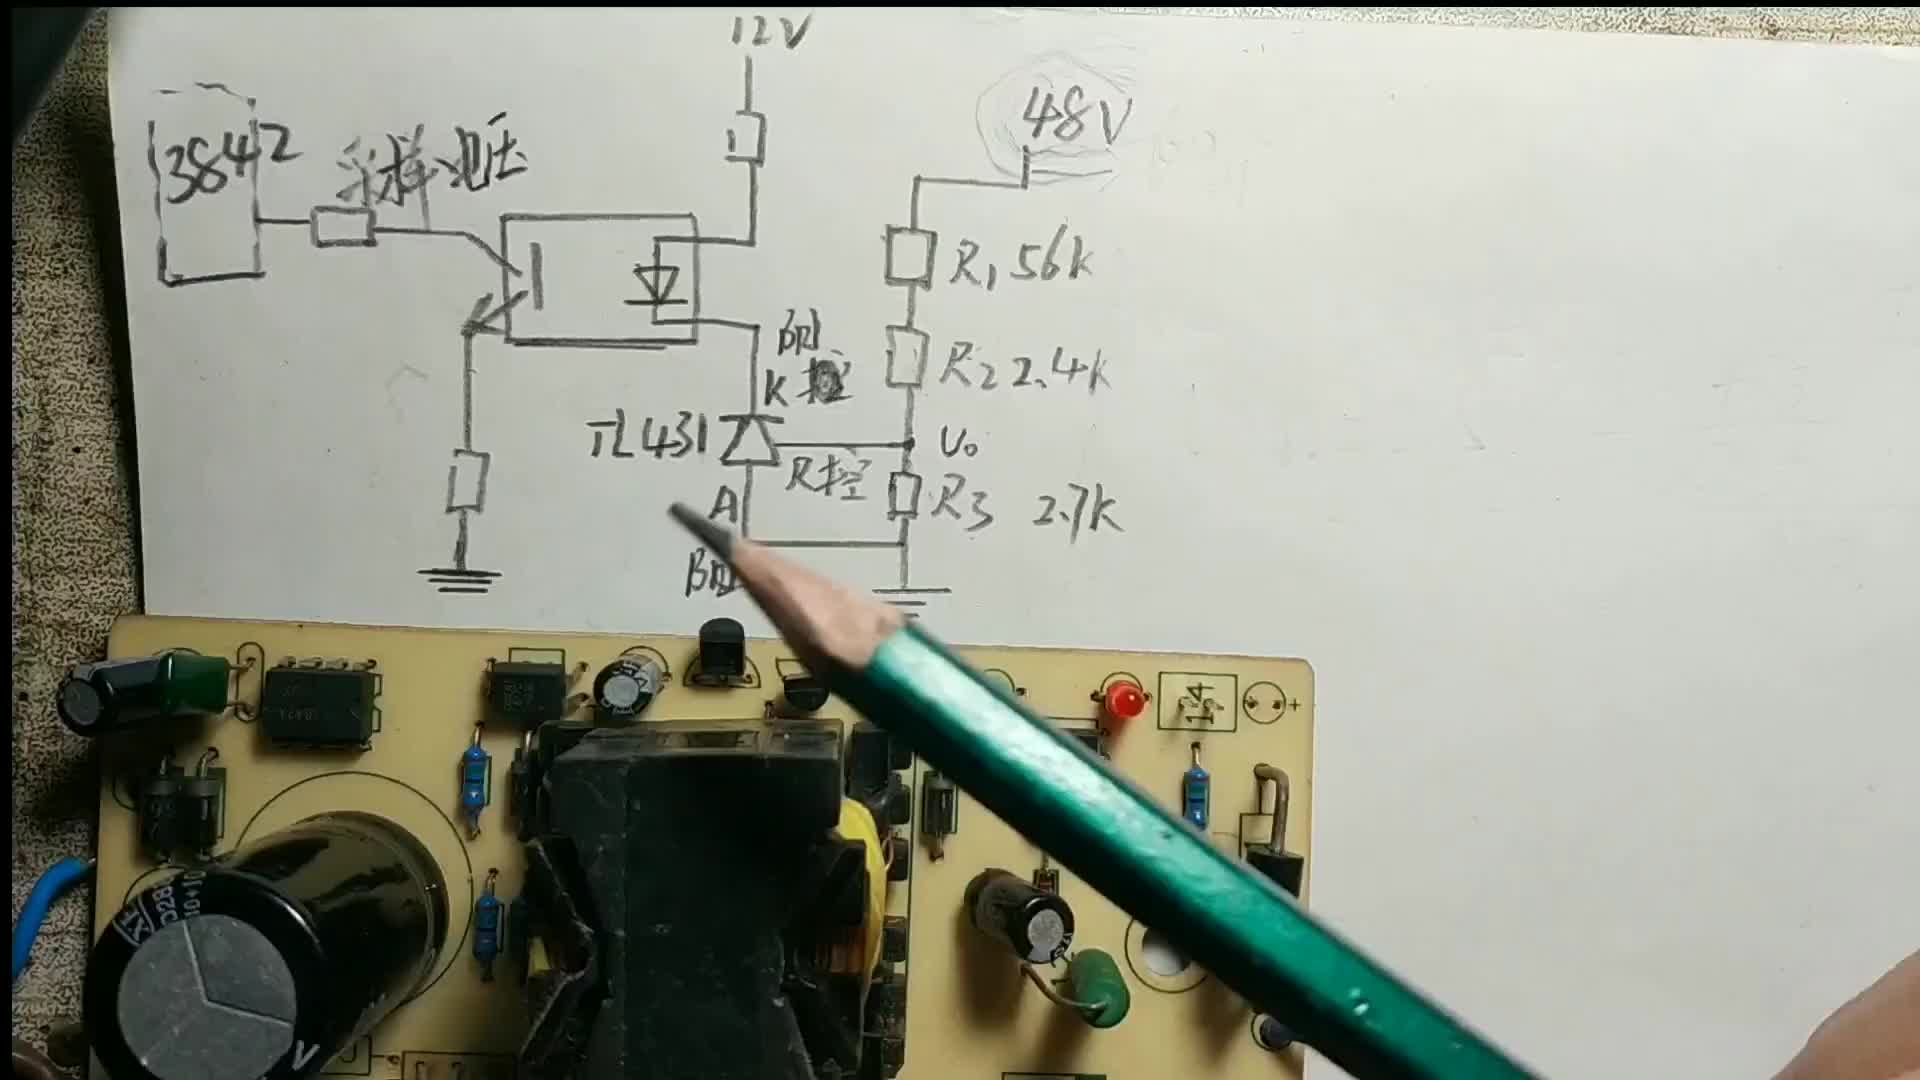 12V
48V
3842
采样电压
R1 56k
R2 2.4k
K
TL431
U0
R控
A
R3 2.7K
V